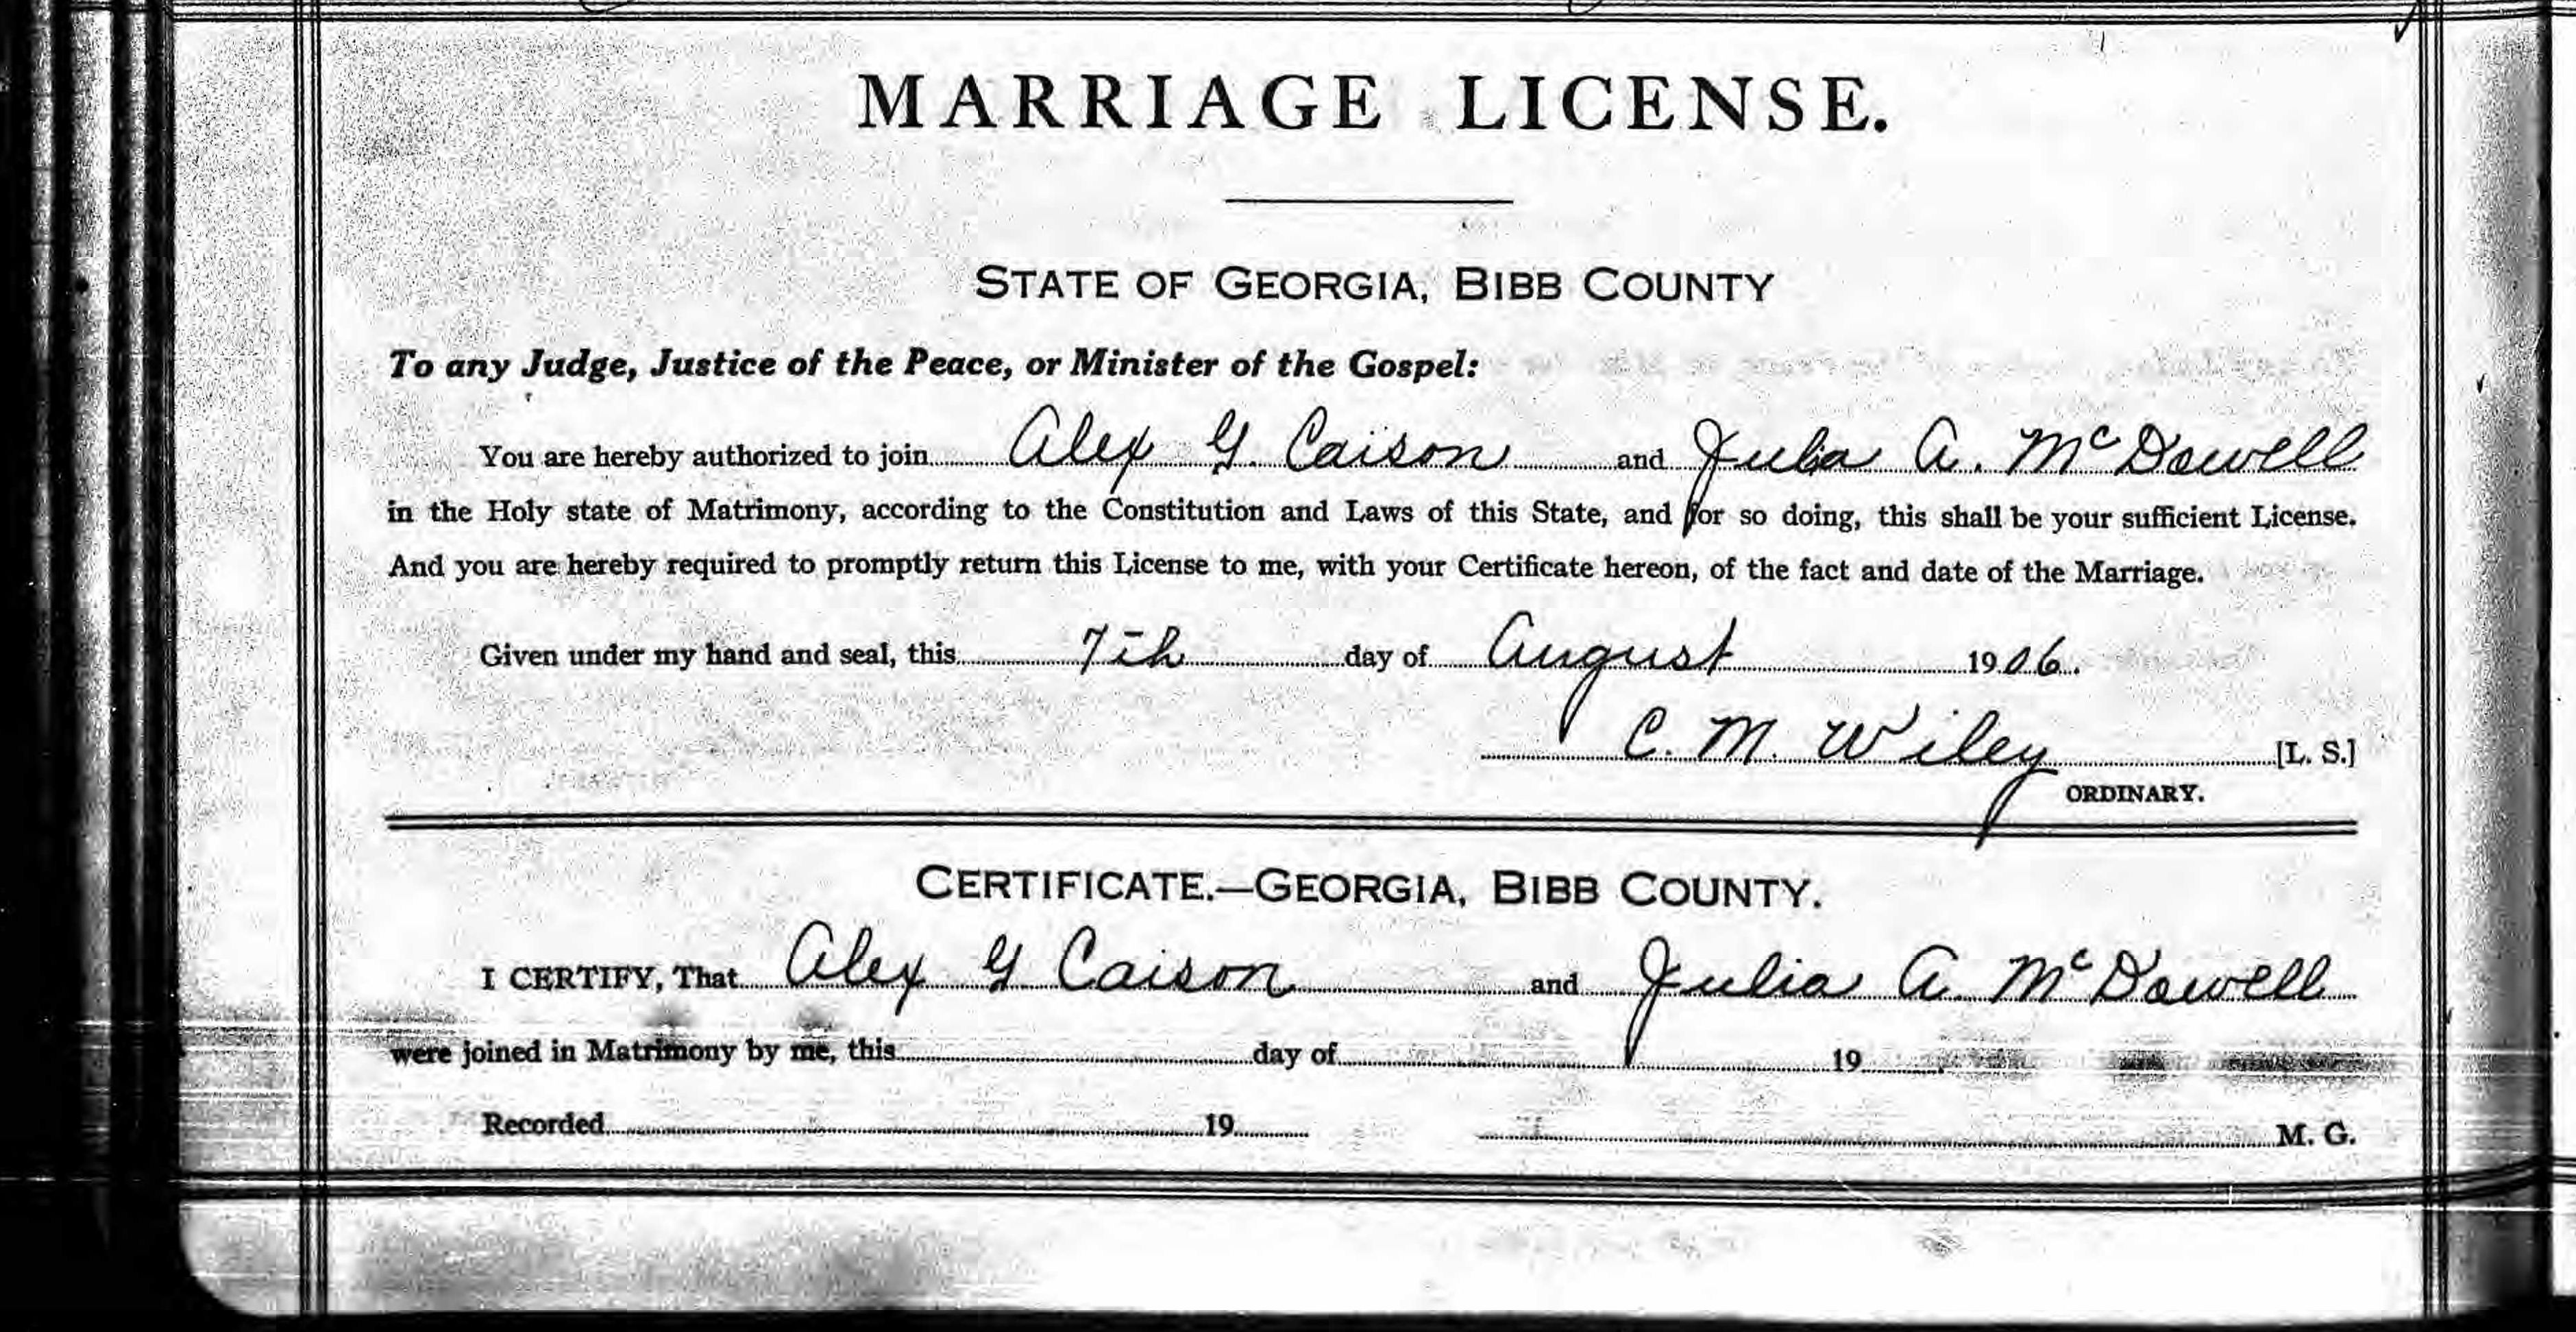 MARRIAGE LICENSE.
STATE OF GEORGIA, BIBB COUNTY
To any Judge, Justice of the Peace, or Minister of the Gospel:
You are hereby authorized to join Alex G. Caison and Julia A. McDowell
in the Holy state of Matrimony, according to the Constitution and Laws of this State, and for so doing, this shall be your sufficient License.
And you are hereby required to promptly return this License to me, with your Certificate hereon, of the fact and date of the Marriage.
Given under my hand and seal, this 7th day of August 1906.
C. M. Wiley [L. S.]
ORDINARY.
CERTIFICATE.—GEORGIA, BIBB COUNTY.
I CERTIFY, That Alex G Caison and Julia A. McDowell
were joined in Matrimony by me, this day of 19
Recorded 19 M. G.